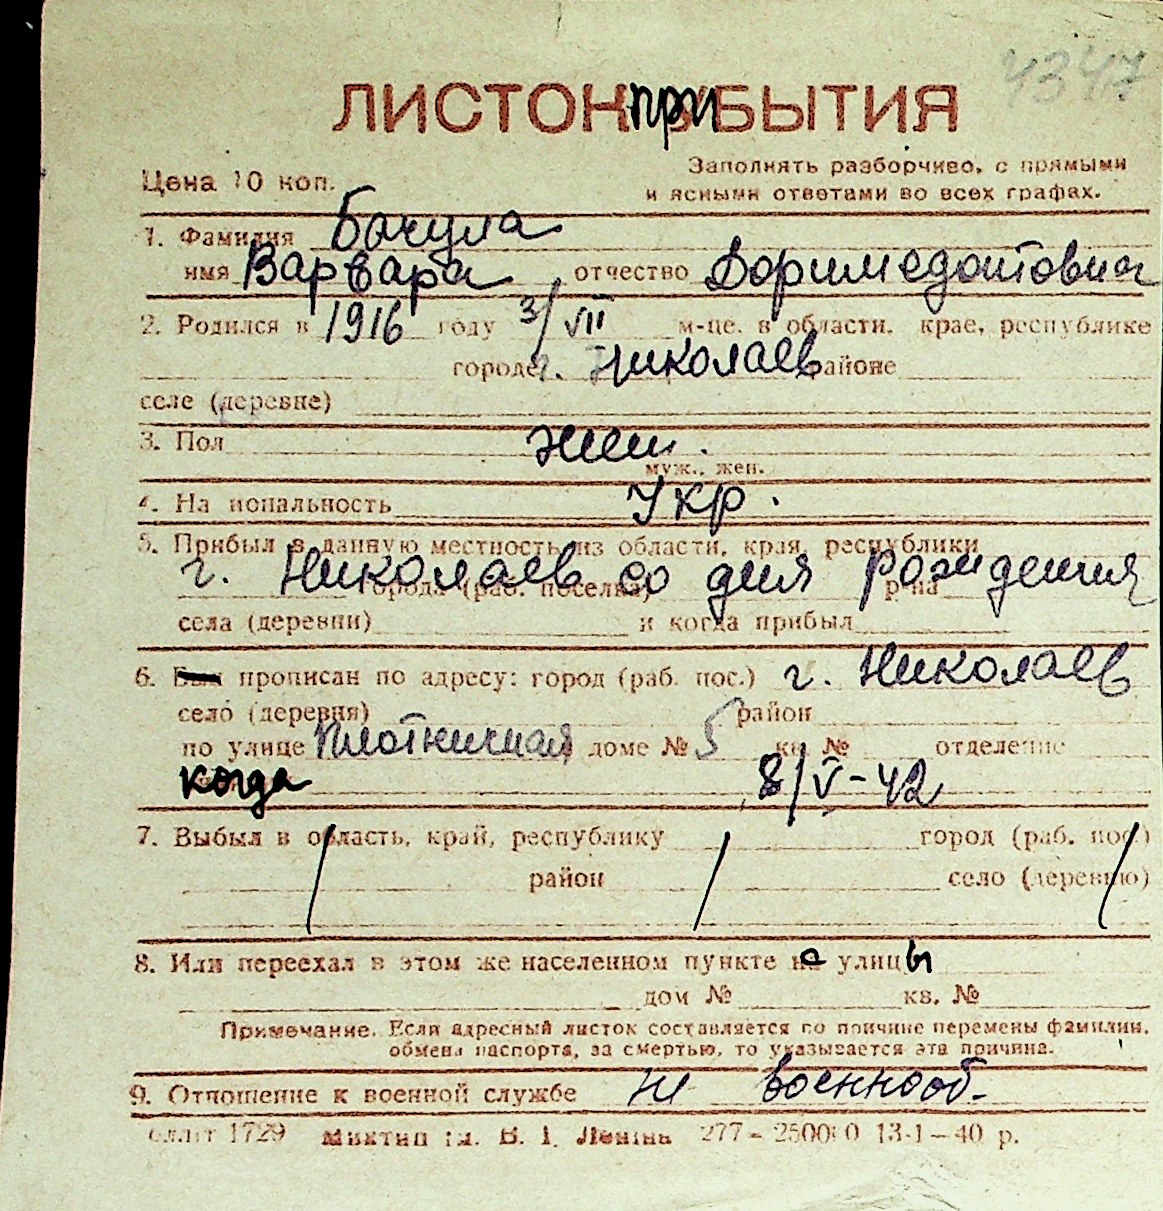 4347
ЛИСТОК приБЫТИЯ
Цена 10 коп.
Заполнять разборчиво, с прямыми
и ясными ответами во всех графах.
1. Фамилия Бачула
имя Варвара отчество Доримедонтовна
2. Родился в 1916 году 3/VII м-це, в области, крае, республике
городе г. Николаев районе
селе (деревне)
3. Пол жен.
муж., жен.
4. На иональность Укр.
5. Прибыл в данную местность из области, края, республики
г. Николаев со дня рождения
города (раб. поселка) р-на
села (деревни) и когда прибыл
6. Был прописан по адресу: город (раб. пос.) г. Николаев
село (деревня) район
по улице Плотничная доме № 5 кв. № отделение
когда 8/V-42
7. Выбыл в область, край, республику город (раб. пос.)
район село (деревню)
8. Или переехал в этом же населенном пункте с улицы
дом № кв. №
Примечание. Если адресный листок составляется по причине перемены фамилии,
обмена паспорта, за смертью, то указывается эта причина.
9. Отношение к военной службе не военнооб.
1729 им. В. И. Ленина 277 — 250000 13-I—40 р.